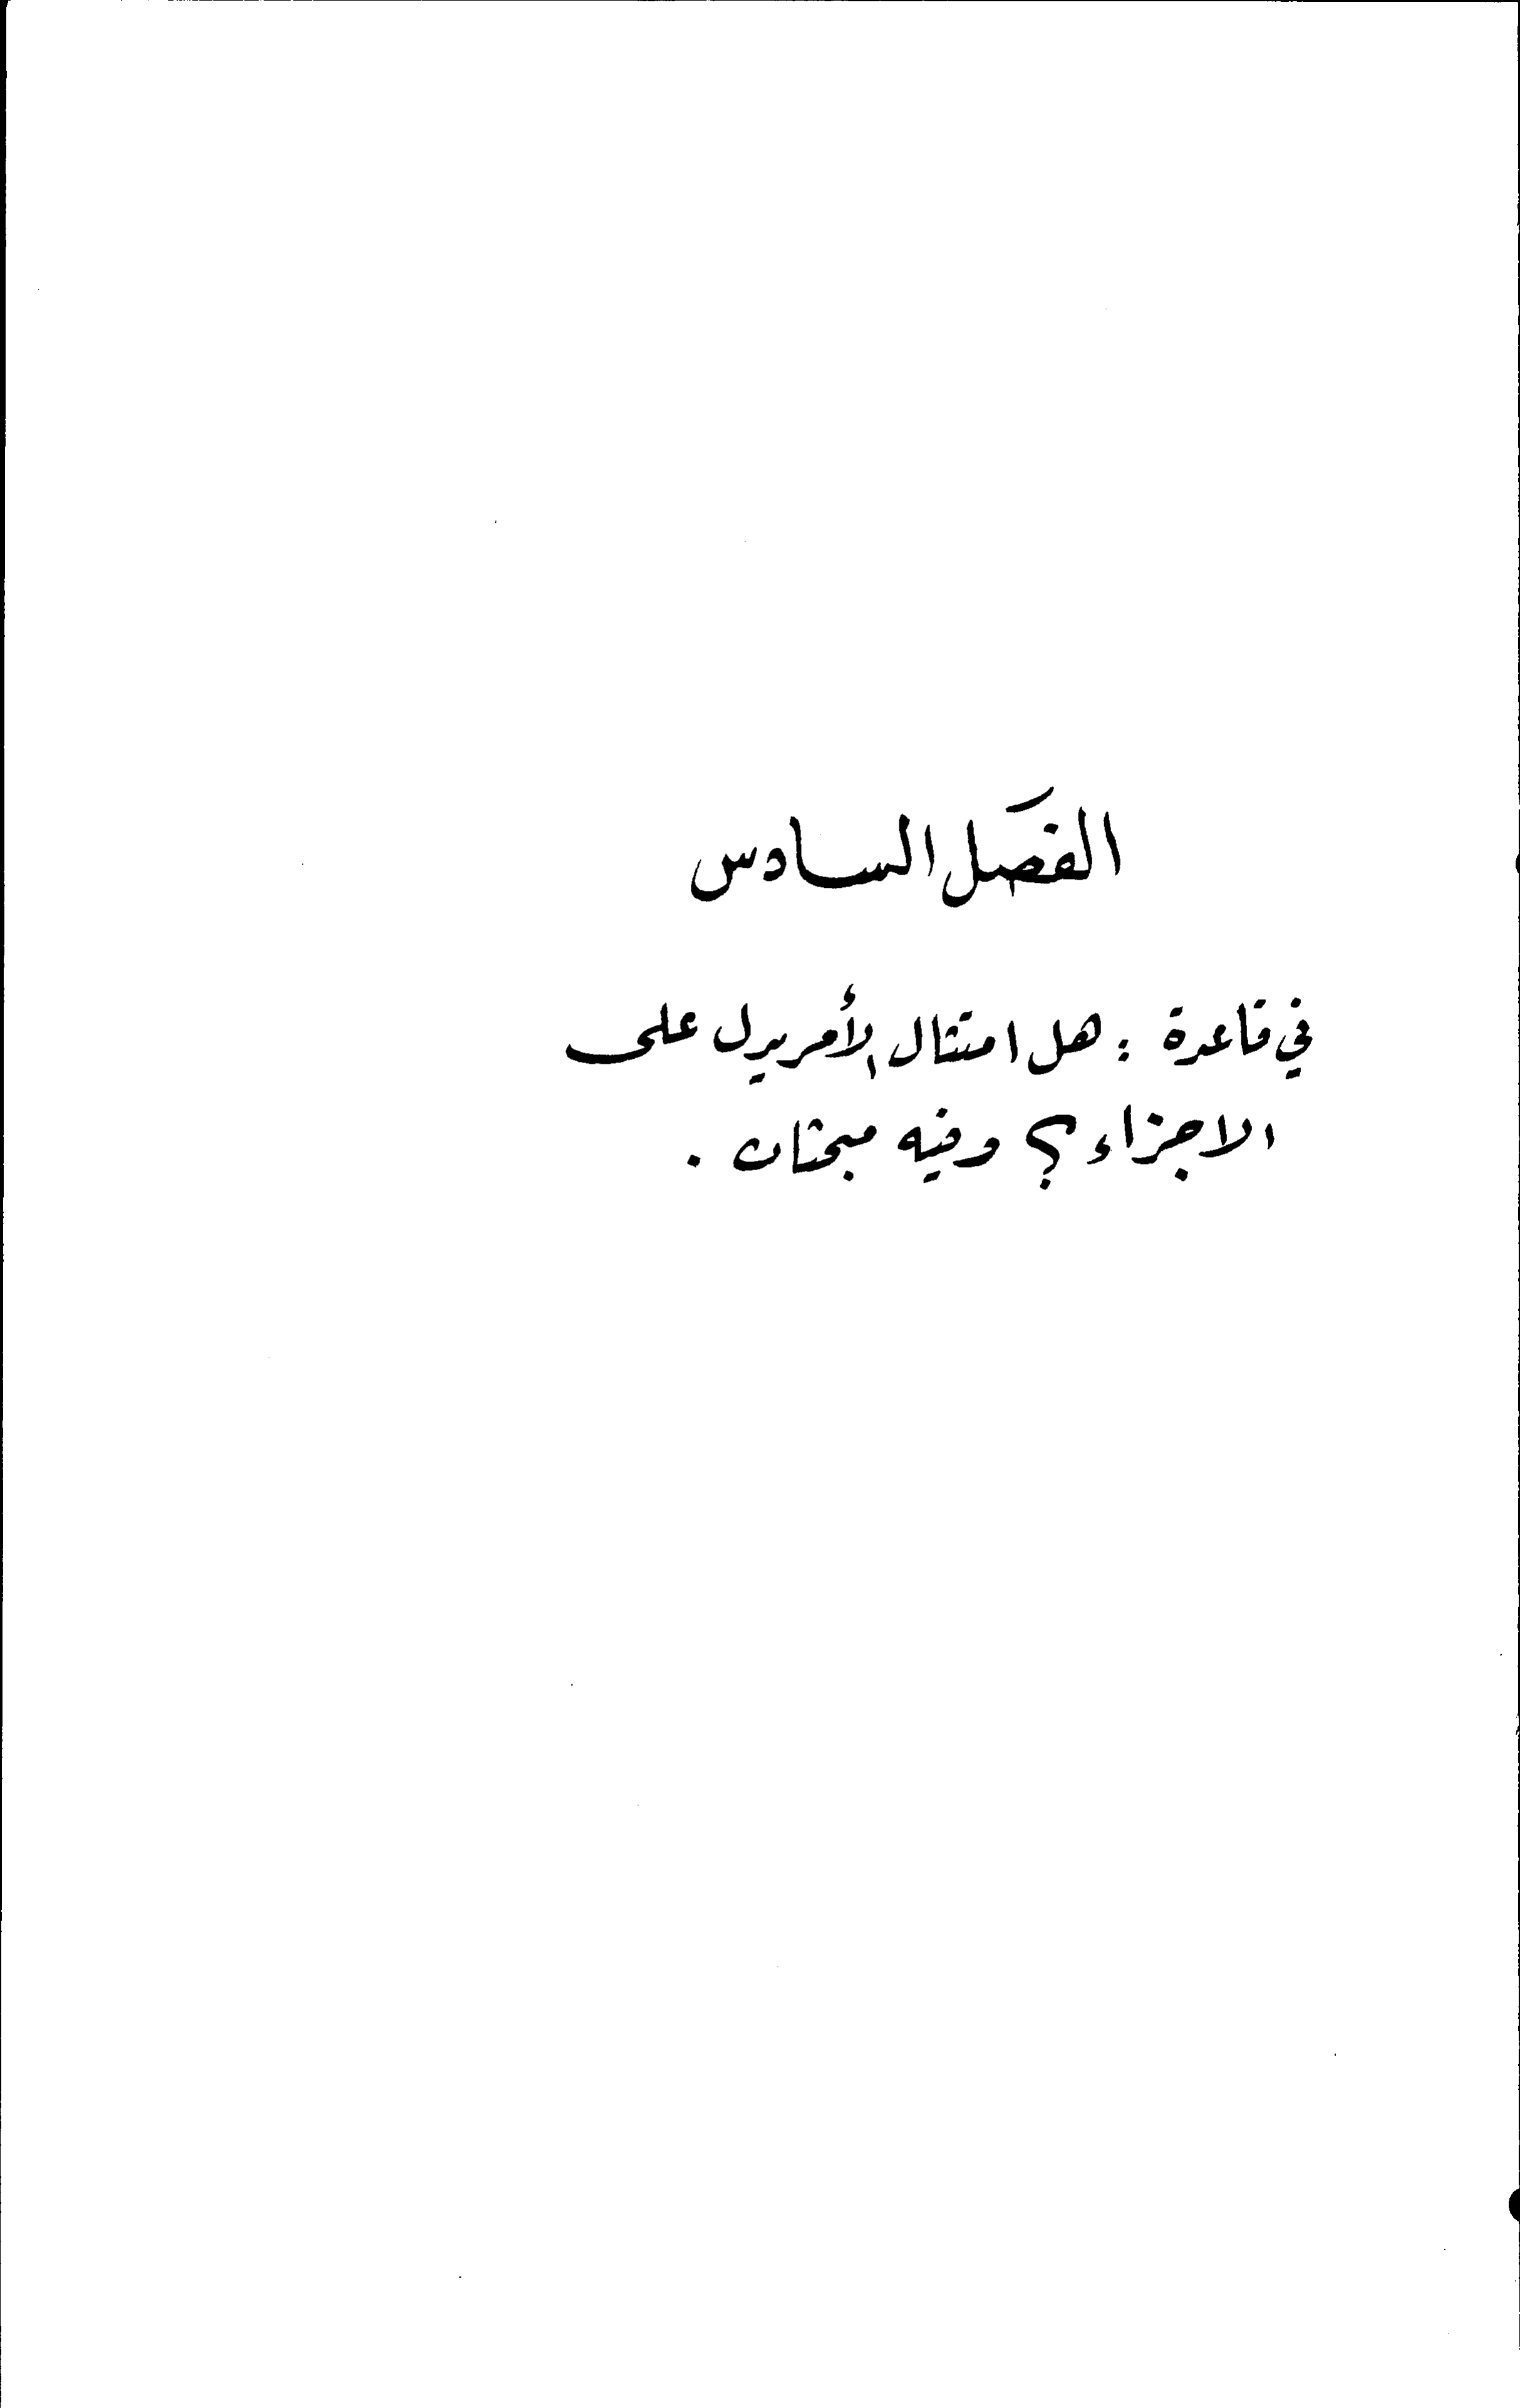 الفَصَل السادس
في قاعدة : هل امتثال الأمر يدل على
الاجزاء ؟ وفيه مبحثان .